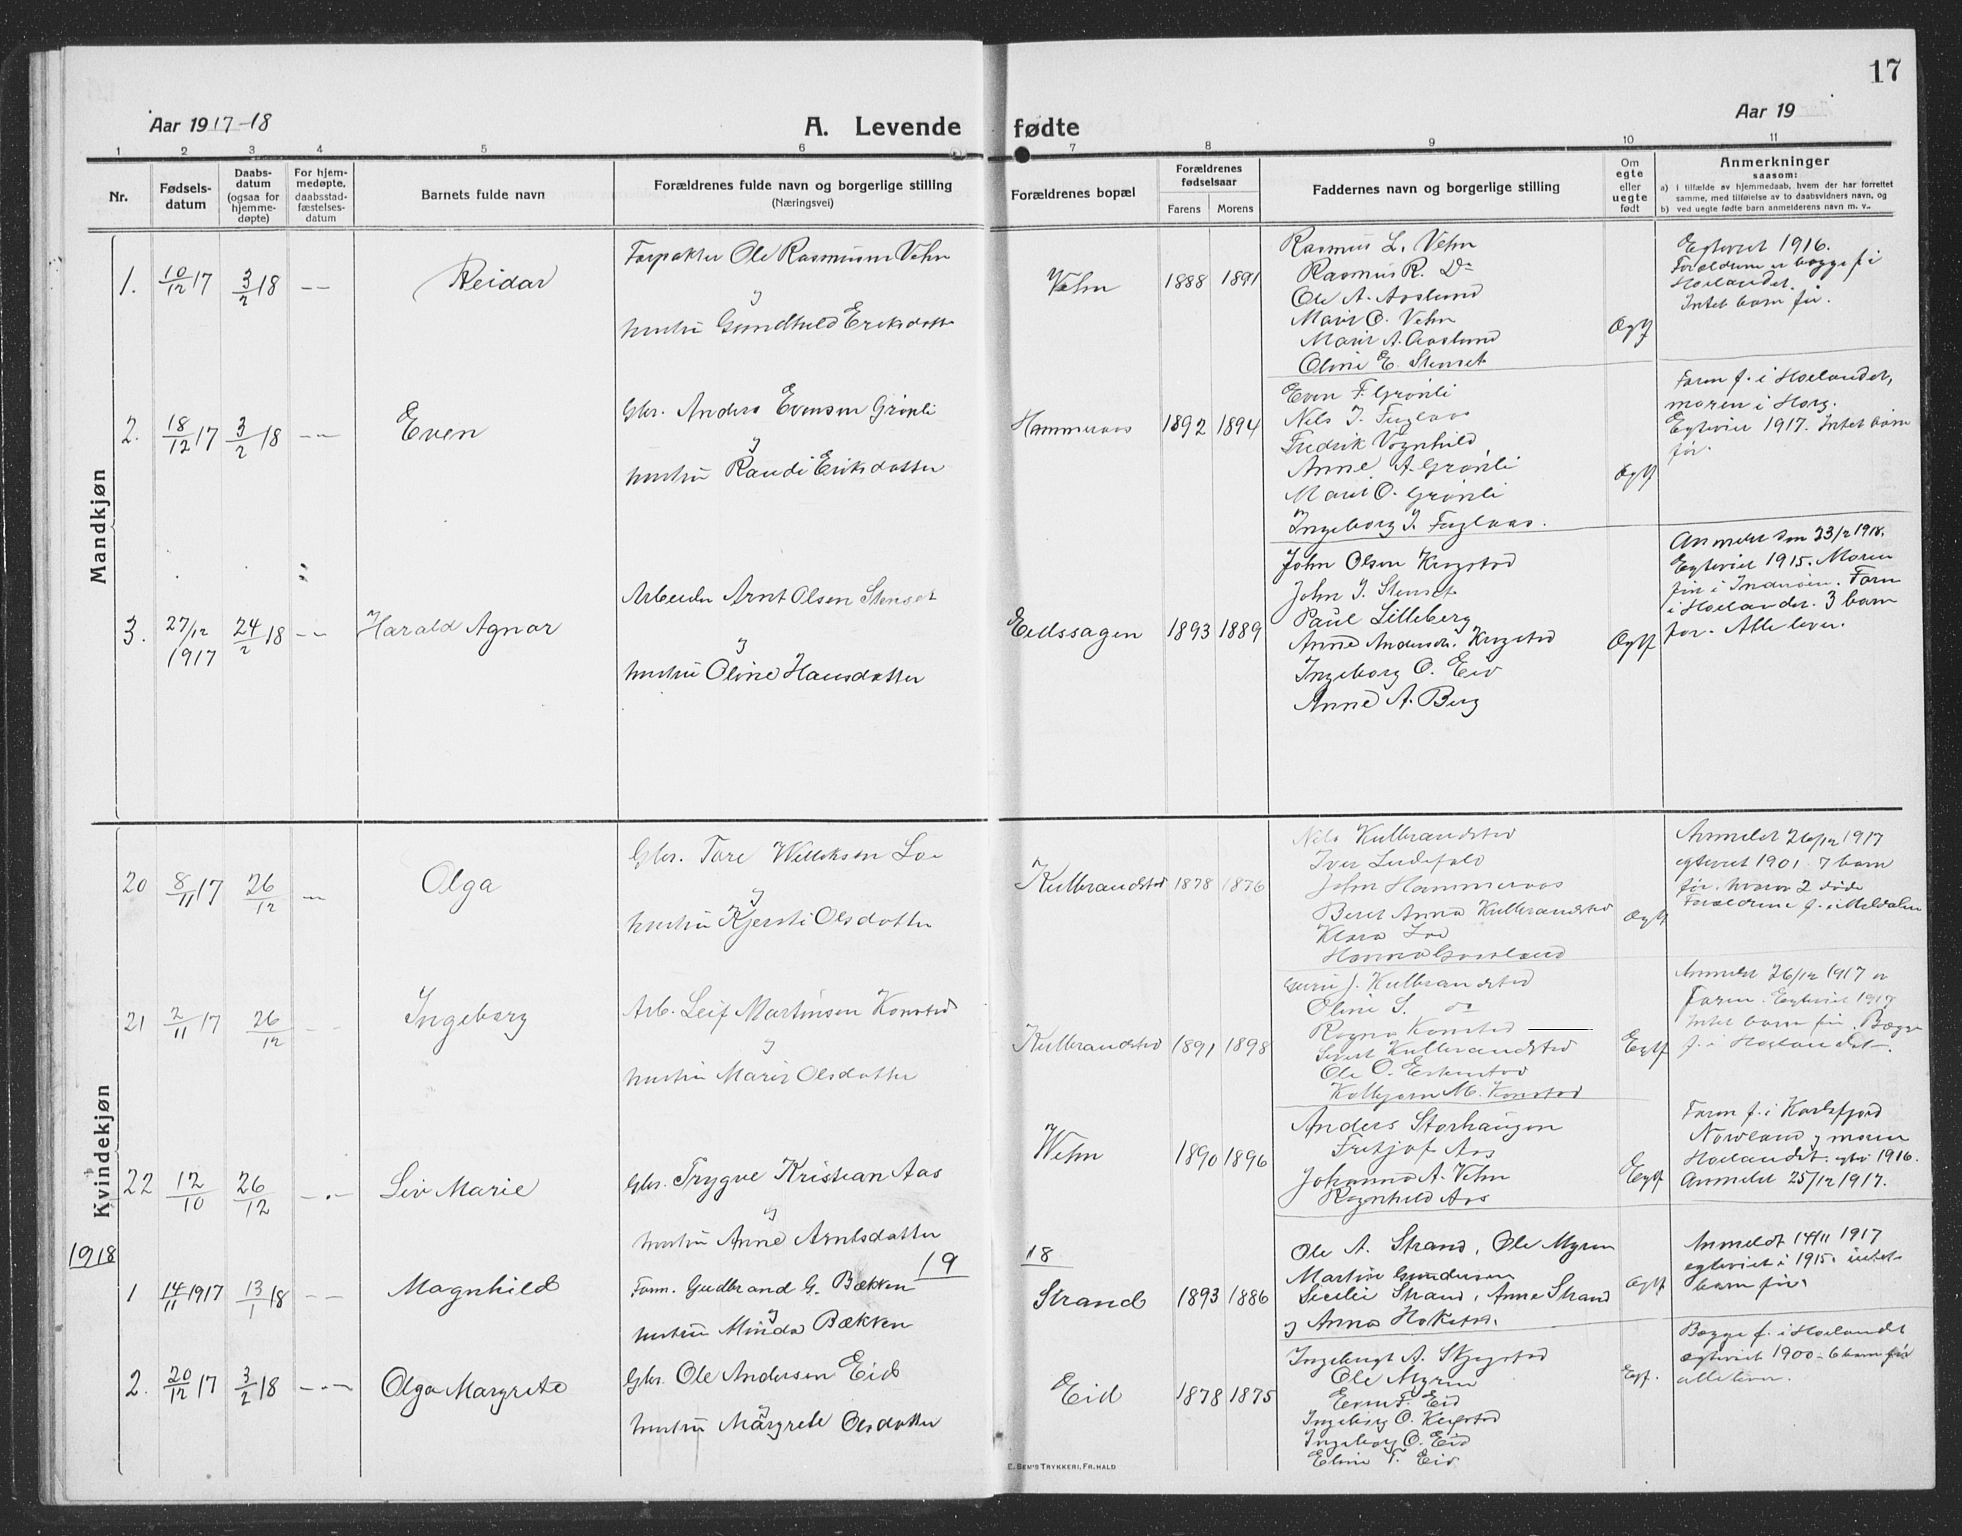 17
Aar 1917-18
A. Levende fødte
Aar 19
1 2 3 4 5 6 7 8 9 10 11
Nr.
Fødsels-
datum
Daabs-
datum
(ogsaa for
hjemme-
døpte)
For hjem-
medøpte,
daabsstad-
fæstelses-
datum
Barnets fulde navn
Forældrenes fulde navn og borgerlige stilling
(Næringsvei)
Forældrenes bopæl
Forældrenes
fødselsaar
Farens Morens
Faddernes navn og borgerlige stilling
Om
egte
eller
uegte
født
Anmerkninger
saasom:
a) i tilfælde av hjemmedaab, hvem der har forrettet
samme, med tilføielse av to daabsvidners navn, og
b) ved uegte fødte barn anmelderens navn m. v..
Mandkjøn
1. 10/12 17 3/2 18 -- Reidar
Forpakter Ole Rasmussen Vehn
og
hustru Gundhild Eriksdatt
Vehn 1888 1891
Rasmus L. Vehn
Rasmus R. Do
Ole A. Aaslund
Marit O. Vehn
Marit A. Aaslund
Oline E. Stenset
Ægtf
Egteviet 1916.
Forældrene er begge f i
Hølandet.
Intet barn før.
2. 18/12 17 3/2 18 -- Even
Gbr. Anders Evensen Grønli
og
hustru Randi Eriksdatter
Hammeraas 1892 1894
Even F. Grønli
Nils J. Fuglaas
Fredrik Vognhild
Anne A. Grønli
Marit O. Grønli
Ingeborg J. Fuglaas.
Ægtf
Faren f. i Hølandet,
moren i Horg.
Egteviet 1917. Intet barn
før.
3. 27/12 1917 24/2 18 -- Harald Agnar
Arbeider Arnt Olsen Stenset
og
hustru Oline Hansdatter
Eidssagen 1893 1889
John Olsen Krogstad
John J. Stenset
Paul Lilleberg
Anne Andersdt. Krogstad
Ingeborg O. Eid
Anne A. Berg
Ægtf
Anmeldt den 23/2 1918.
Egteviet 1915. Moren
f. i Inderøen. Faren
i Hølandet. 3 barn
før. Alle lever.
Kvindekjøn
20 8/11 17 26/12 -- Olga
Gbr. Tore Willeksen Lo
og
hustru Kjersti Olsdatter
Kulbrandstad 1878 1876
Nils Kulbrandstad
Iver
John Hammeraas
Beret Anna Kulbrandstad
Klara Lo
Hanna
Ægtf
Anmeldt 26/12 1917
egteviet 1901. 7 barn
før. hvorav 2 døde
Forældrene f. i Meldalen
21 2/11 17 26/12 -- Ingeborg
Arb. Leif Martinsen Konstad
og
hustru Marit Olsdatter
Kulbrandstad 1891 1898
Guru J. Kulbrandstad
Oline S. do
Ragna Konstad
Sivert Kulbrandstad
Ole O. Eskustad
Kolbjørn M. Konstad
Egtf
Anmeldt 26/12 1917 av
Faren. Egteviet 1917
Intet barn før. Begge
f. i Hølandet.
22 12/10 26/12 -.- Liv Marie
Gbr. Trygve Kristian Aas
og
hustru Anne Arntsdatter
Vehn 1890 1896
Anders Storhaugen
Fritjof Aas
Johanna A. Vehn
Ragnhild Aas
Egtf
Faren f. i Karlsfjord
Nordland og moren
Hølandet. egtv 1916.
Anmeldt 25/12 1917.
1918
19 18
1 14/11 1917 13/1 18 -- Magnhild
Farm. Gudbrand G. Bækken
og
hustru Minda Bækken
Strand 1893 1886
Ole A. Strand, Ole Myren
Martin Gundersen
Secilie Strand, Anne Strand
og Anna Hokstad.
Ægtf
Anmeldt 14/11 1917
egteviet i 1915. intet
barn før.
2. 20/12 17 3/2 18 -.- Olga Margrete
Gbr. Ole Andersen Eid
og
hustru Margrete Olsdatter
Eid 1878 1875
Ingebrigt A. Skjegstad
Ole Myren
Even F. Eid
Ingeborg O. Krogstad
Ingeborg O. Eid
Eline T. Eid
Egtf.
Begge f. i Hølandet
egteviet 1900 - 6 barn før
alle lever.
E. Sem's Trykkeri, Fr.hald